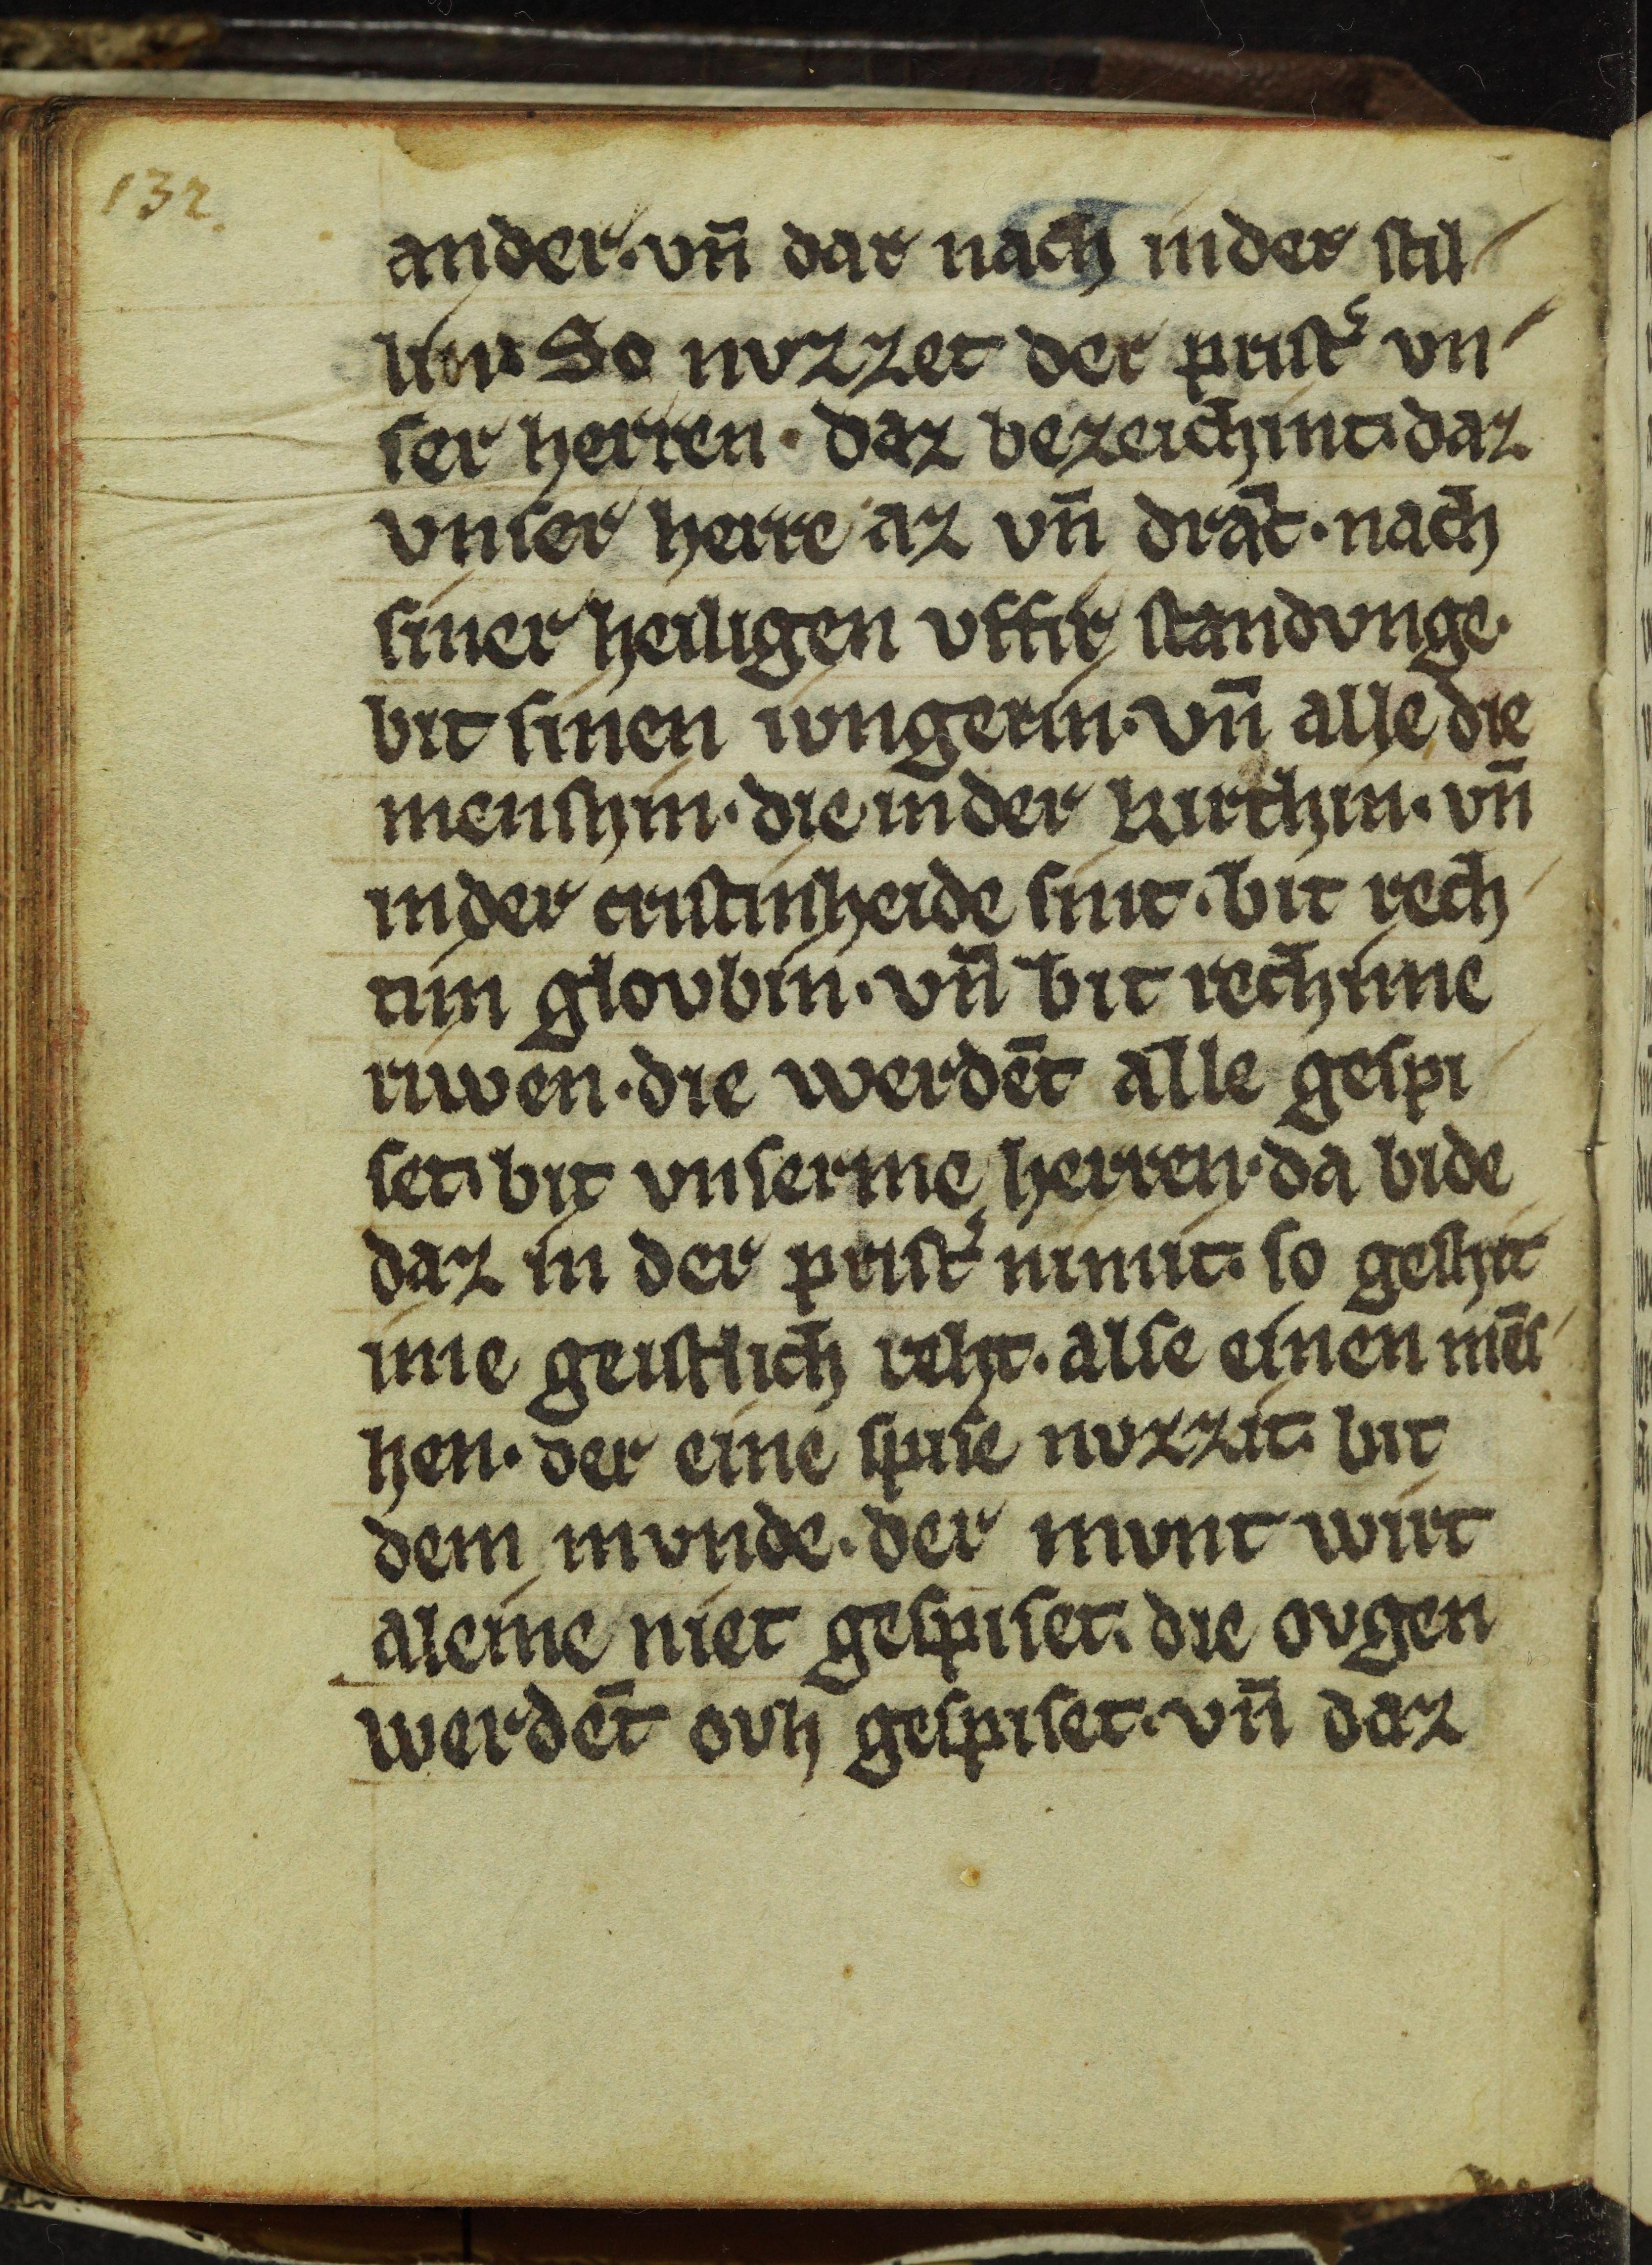 132.
ander. vn̄ dar nach in der stil
lin. So nvzzet der prist͛ vn
ser herren. daz bezeichint. daz
vnser herre az vn̄ drāc. nach
siner heiligen vffir standvnge.
bit sinen ivngerin. vn̄ alle die
menshin. die in der kirchin. vn̄
in der cristinheide sint. bit rech
tim glovbin. vn̄ bit rechtime
riwen. die werdēt alle gespi
set. bit vnserme herren. da bide
daz in der prist͛ nimit. so geshit
ime geistlich reht. alse einen mēs
hen. der eine spise nvzzit. bit
dem mvnde. der mvnt wirt
aleine niet gespiset. die ovgen
werdēt ovh gespiset. vn̄ daz